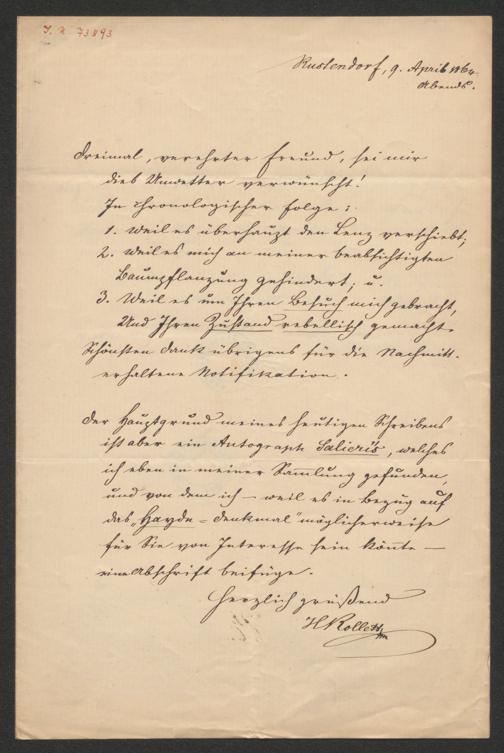 I. N. 73893
Rustendorf, 9. April 1864.
Abends.
Dreimal, verehrter Freund, sei mir
dies Unwetter verwünscht!
In chronologischer Folge:
1. Weil es überhaupt den Lenz verschiebt;
2. Weil es mich an meiner beabsichtigten
Baumpflanzung gehindert; u.
3. Weil es um Ihren Besuch mich gebracht,
Und Ihren Zustand rebellisch gemacht.
Schönsten Dank übrigens für die Nachmitt.
erhaltene Notifikation.
Der Hauptgrund meines heutigen Schreibens
ist aber ein Autograph Salieri's, welches
ich eben in meiner Sammlung gefunden,
und von dem ich – weil es in Bezug auf
das „Haydn-Denkmal" möglicherweise
für Sie von Interesse sein könnte –
eine Abschrift beifüge.
Herzlich grüßend
HRollett